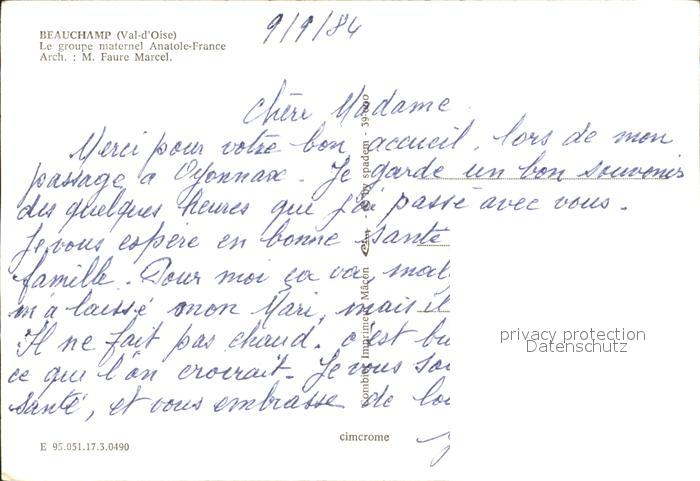 BEAUCHAMP (Val-d'Oise)
Le groupe maternel Anatole-France
Arch. : M. Faure Marcel.
9/9/84
Chère Madame
Merci pour votre bon accueil, lors de mon
passage a Oyonnax. Je garde un bon souvenir
des quelques heures que j'ai passé avec vous.
Je vous espère en bonne santé
famille. Pour moi ça va, mal
m'a laissé mon Mari, mais il
Il ne fait pas chaud. c'est
ce que l'on croirait. Je vous
santé, et vous embrasse de
privacy protection
Datenschutz
Combier Imprimeur Mâcon
spadem - 39-000
E 95.051.17.3.0490
cimcrome